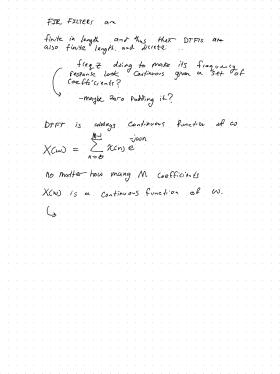 FIR FILTERS are
finite in length and thus their DTFTs are
also finite length, and discrete ...
freqz doing to make its frequency
response look continuous given a set of
coefficients?
- maybe zero padding it?
DTFT is always continuous function of ω
X(ω) = Σ x(n) e^-jωn
M-1
n=0
no matter how many M coefficients
X(ω) is a continuous function of ω.